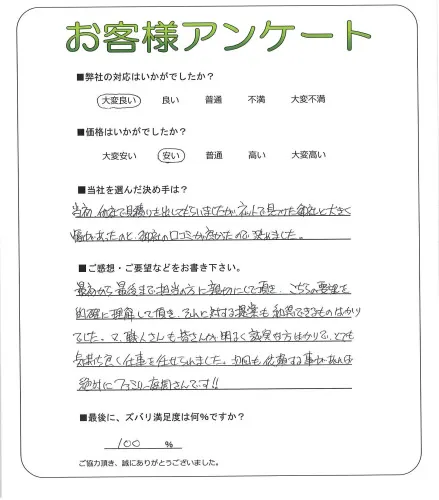 お客様アンケート
■弊社の対応はいかがでしたか？
大変良い 良い 普通 不満 大変不満
■価格はいかがでしたか？
大変安い 安い 普通 高い 大変高い
■当社を選んだ決め手は？
当初、他社で見積りを出してもらいましたが、ネットで見つけた御社と大きく
幅があったのと、御社の口コミが良かったので決めました。
■ご感想・ご要望などをお書き下さい。
最初から最後まで担当の方に親切にして頂き、こちらの要望を
的確に理解して頂き、それに対する提案も納得できるものばかり
でした。又、職人さんも皆さんが明るく誠実な方ばかりで、とても
気持ち良く仕事を任せられました。次回も依頼する事があれば
絶対にファミリー庭園さんです!!
■最後に、ズバリ満足度は何％ですか？
100 %
ご協力頂き、誠にありがとうございました。